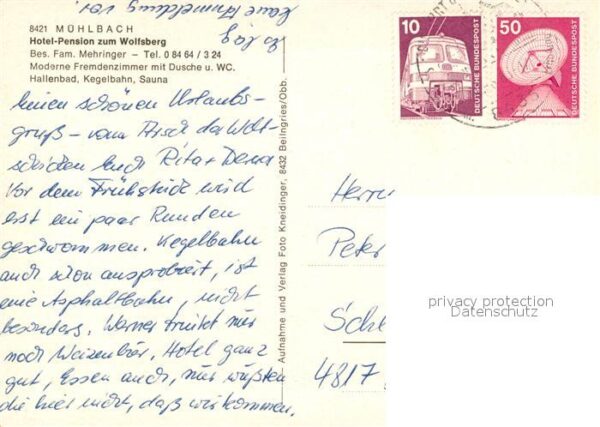 8421 MÜHLBACH
Hotel-Pension zum Wolfsberg
Bes. Fam. Mehringer – Tel. 0 84 64 / 3 24
Moderne Fremdenzimmer mit Dusche u. WC.
Hallenbad, Kegelbahn, Sauna
einen schönen Urlaubs-
gruß – vom
schicken Euch Rita +
Vor dem Frühstück wird
erst ein paar Runden
geschwommen. Kegelbahn
auch schon ausprobiert, ist
eine Asphaltbahn, nicht
besonders. Werner trinkt nur
noch Weizenbier. Hotel ganz
gut, Essen auch, nur wüßten
die hier nicht, daß wir kommen.
keine Anmeldung vor.
Aufnahme und Verlag Foto Kneidinger, 8432 Beilngries/Obb.
10
DEUTSCHE BUNDESPOST
50
DEUTSCHE BUNDESPOST
Herrn
Peter
4817
privacy protection
Datenschutz